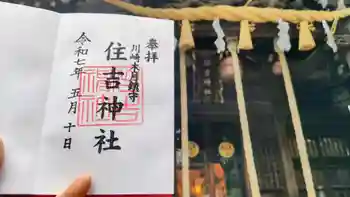 奉拝
川崎木月鎮守
住吉神社
令和七年五月十日